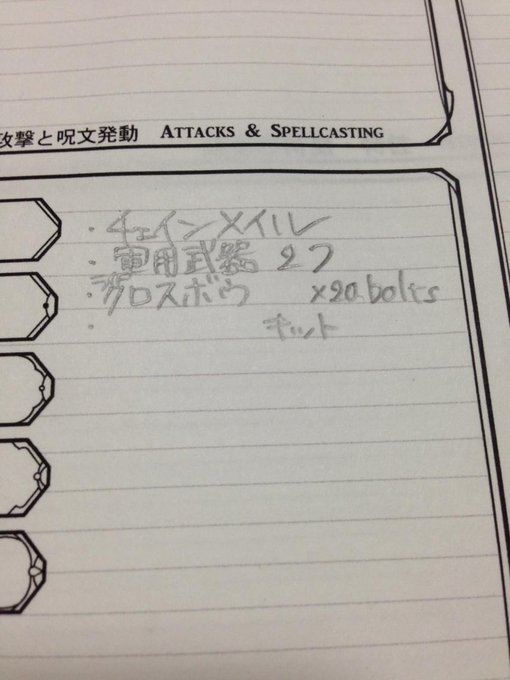 攻撃と呪文発動 ATTACKS & SPELLCASTING
・チェインメイル
・軍用武器 2つ
・クロスボウ ×20 bolts
・ キット